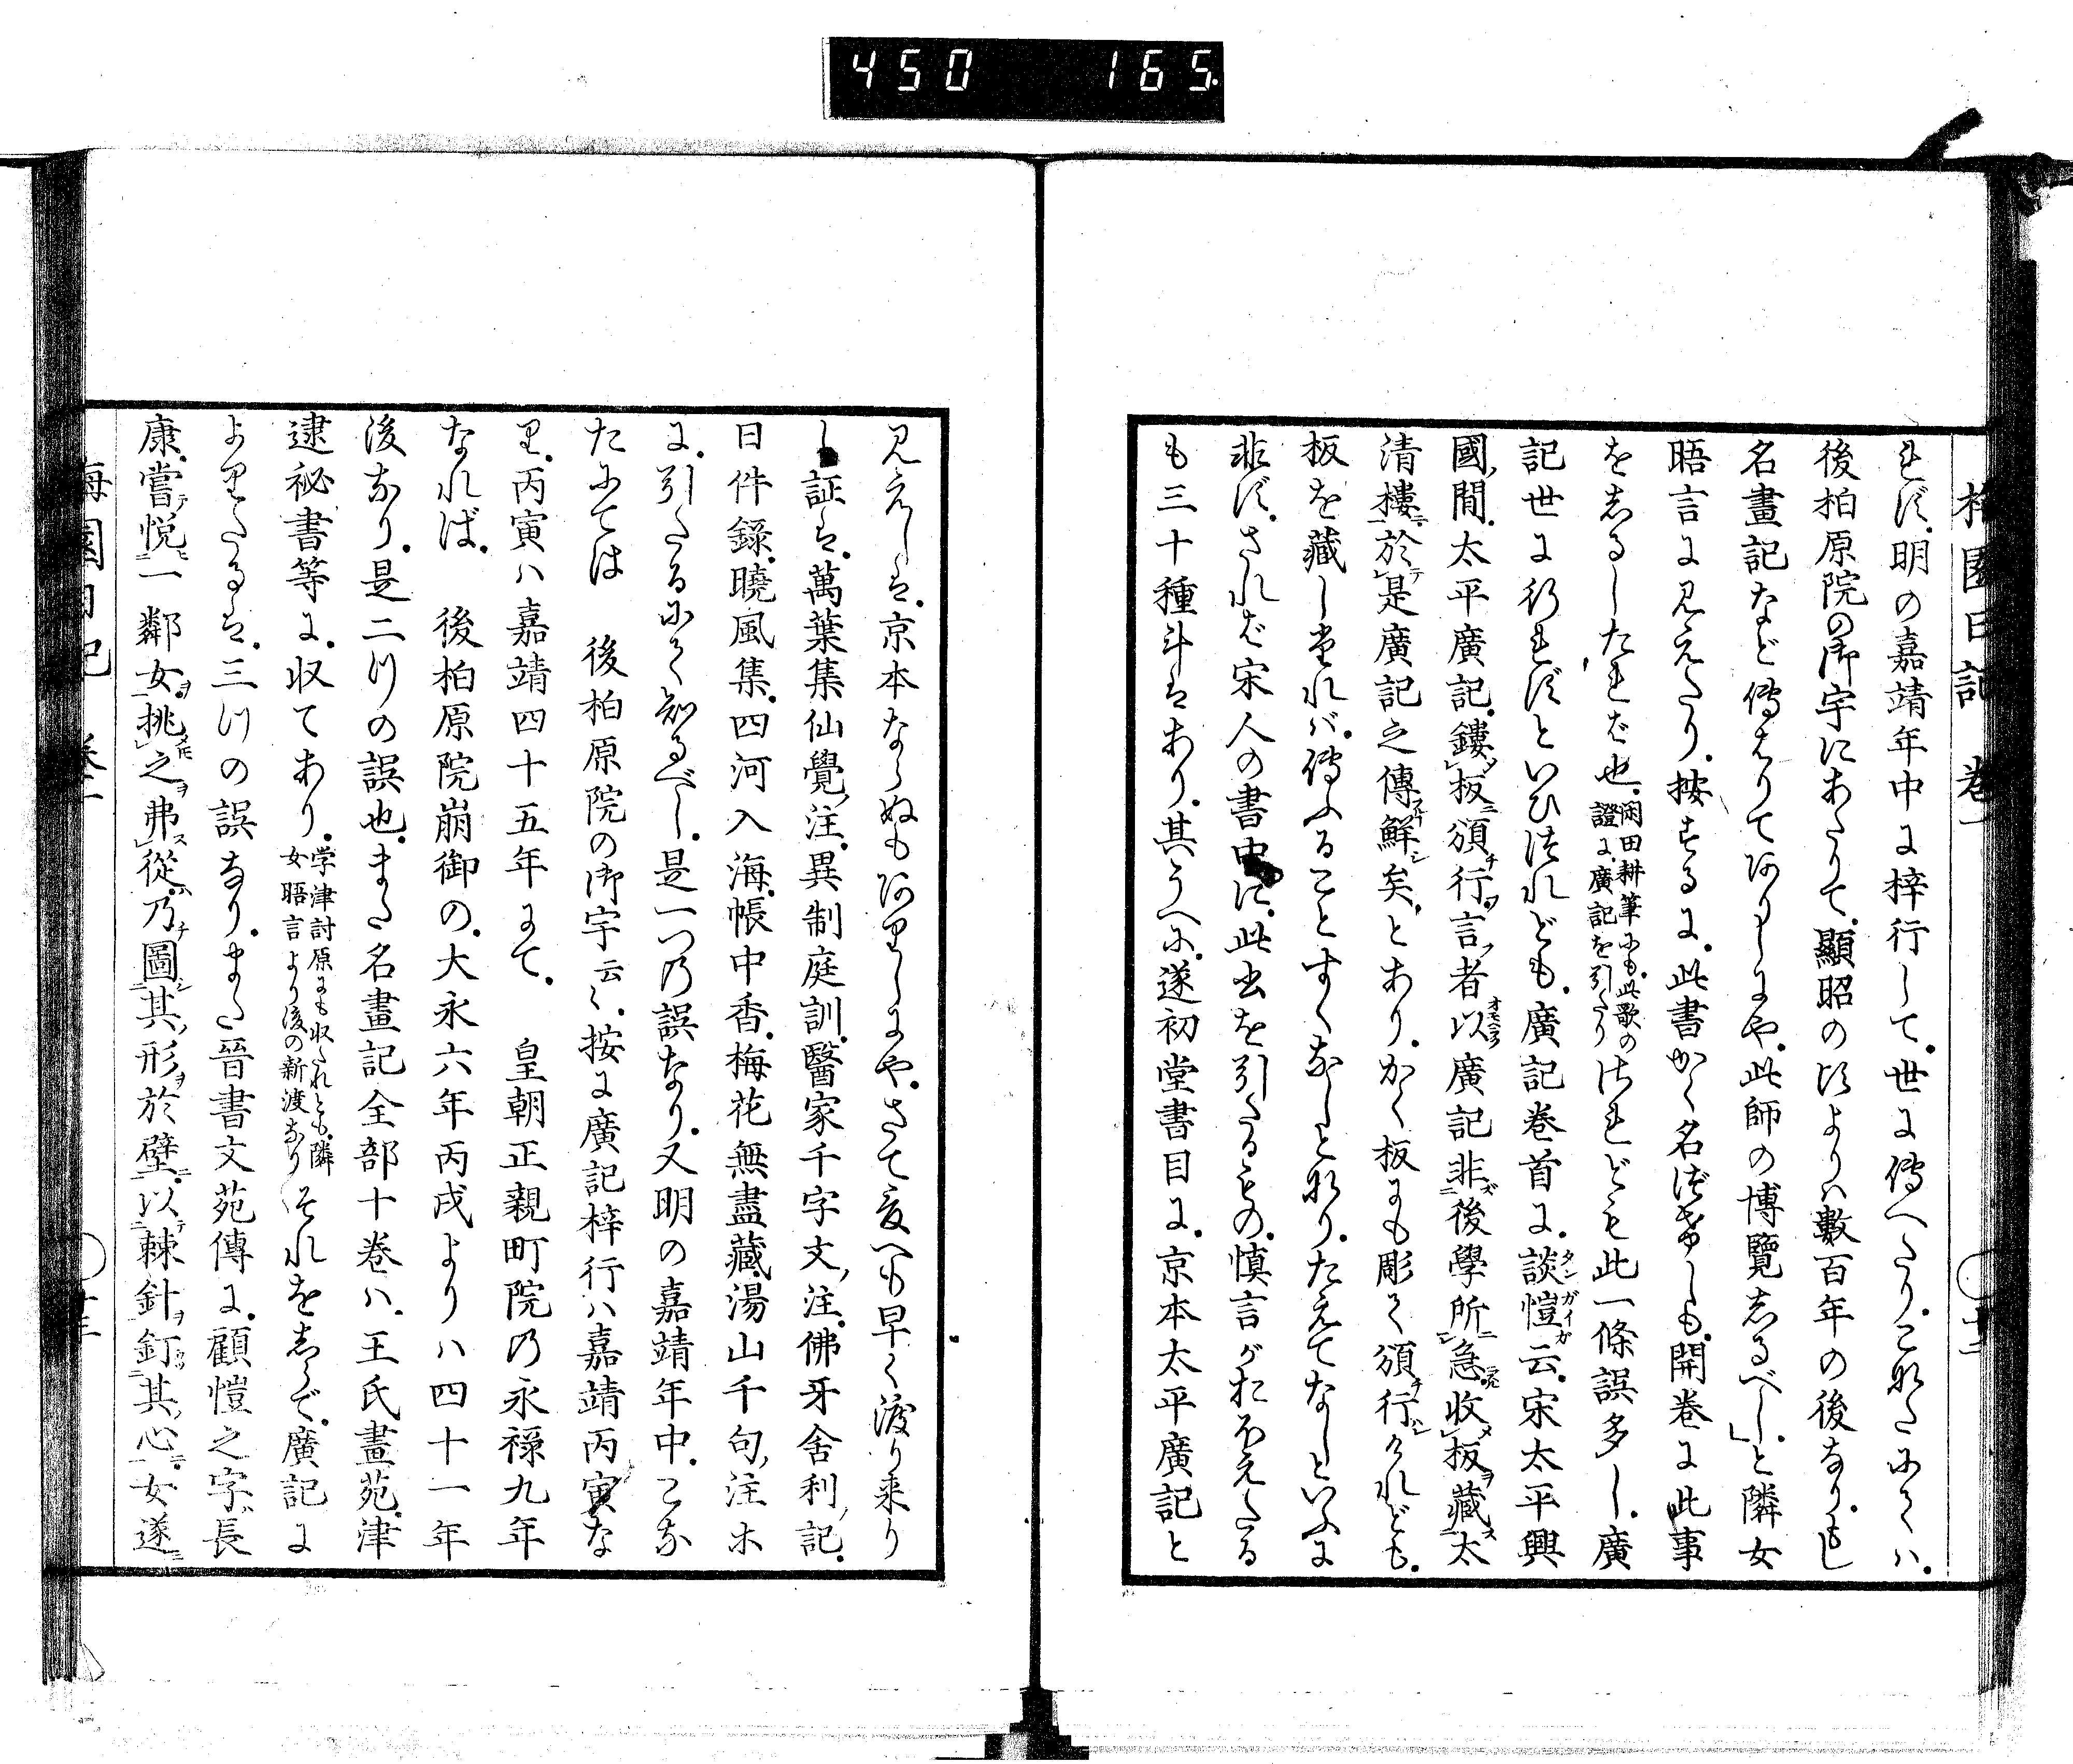 450 165
梅園日記 卷一 ○十二
れば、明の嘉靖年中に梓行して、世に傳へたり、こなたにては、
後柏原院の御宇にあたりて、顯昭の比よりは數百年の後なり、もし
名畫記など傳はりてありしにや、此師の博覽しるべし」と隣女
晤言に見えたり、按ずるに、此書かく名だゝしも、開卷に此事
をしるしたれば也、
閑田耕筆にも、此歌の
證に、廣記を引たり
されども此一條誤多し、廣
記世に行れずといひつれども、廣記卷首に、談愷云、宋太平興
國、間、太平廣記、鏤板頒行、言者以廣記非後學所急、收板藏太
清樓、於是廣記之傳鮮矣、とあり、かく板にも彫て頒行しけれども、
板を藏しゝれば、傳ふることすくなしと也、たえてなしといふに
非ず、されば宋人の書中に、此書を引たるもの、愼言がおぼえたる
も三十種斗はあり、其うへに、遂初堂書目に、京本太平廣記と
見えしは、京本ならぬもありしにや、さて爰へも早く渡り來り
し証は、萬葉集仙覺注、異制庭訓、醫家千字文注、佛牙舍利記、
日件錄、曉風集、四河入海、帳中香、梅花無盡藏、湯山千句注ホ
に、引たるにて知るべし、是一つの誤なり、又明の嘉靖年中、こな
たにては 後柏原院の御宇云々、按に廣記梓行ハ嘉靖丙寅な
り、丙寅ハ嘉靖四十五年にて、 皇朝正親町院の永祿九年
なれば、 後柏原院崩御の、大永六年丙戌よりハ四十一年
後なり、是二つの誤也、また名畫記全部十卷ハ、王氏畫苑、津
逮祕書等に、収てあり、
学津討原にも収たれとも、隣
女晤言より後の新渡なり
それをしらで、廣記に
よりたるは、三つの誤なり、また晉書文苑傳に、顧愷之字長
康、嘗悦一鄰女、挑之弗從、乃圖其形於壁、以棘針釘其心、女遂
梅園日記 卷一 ○十三